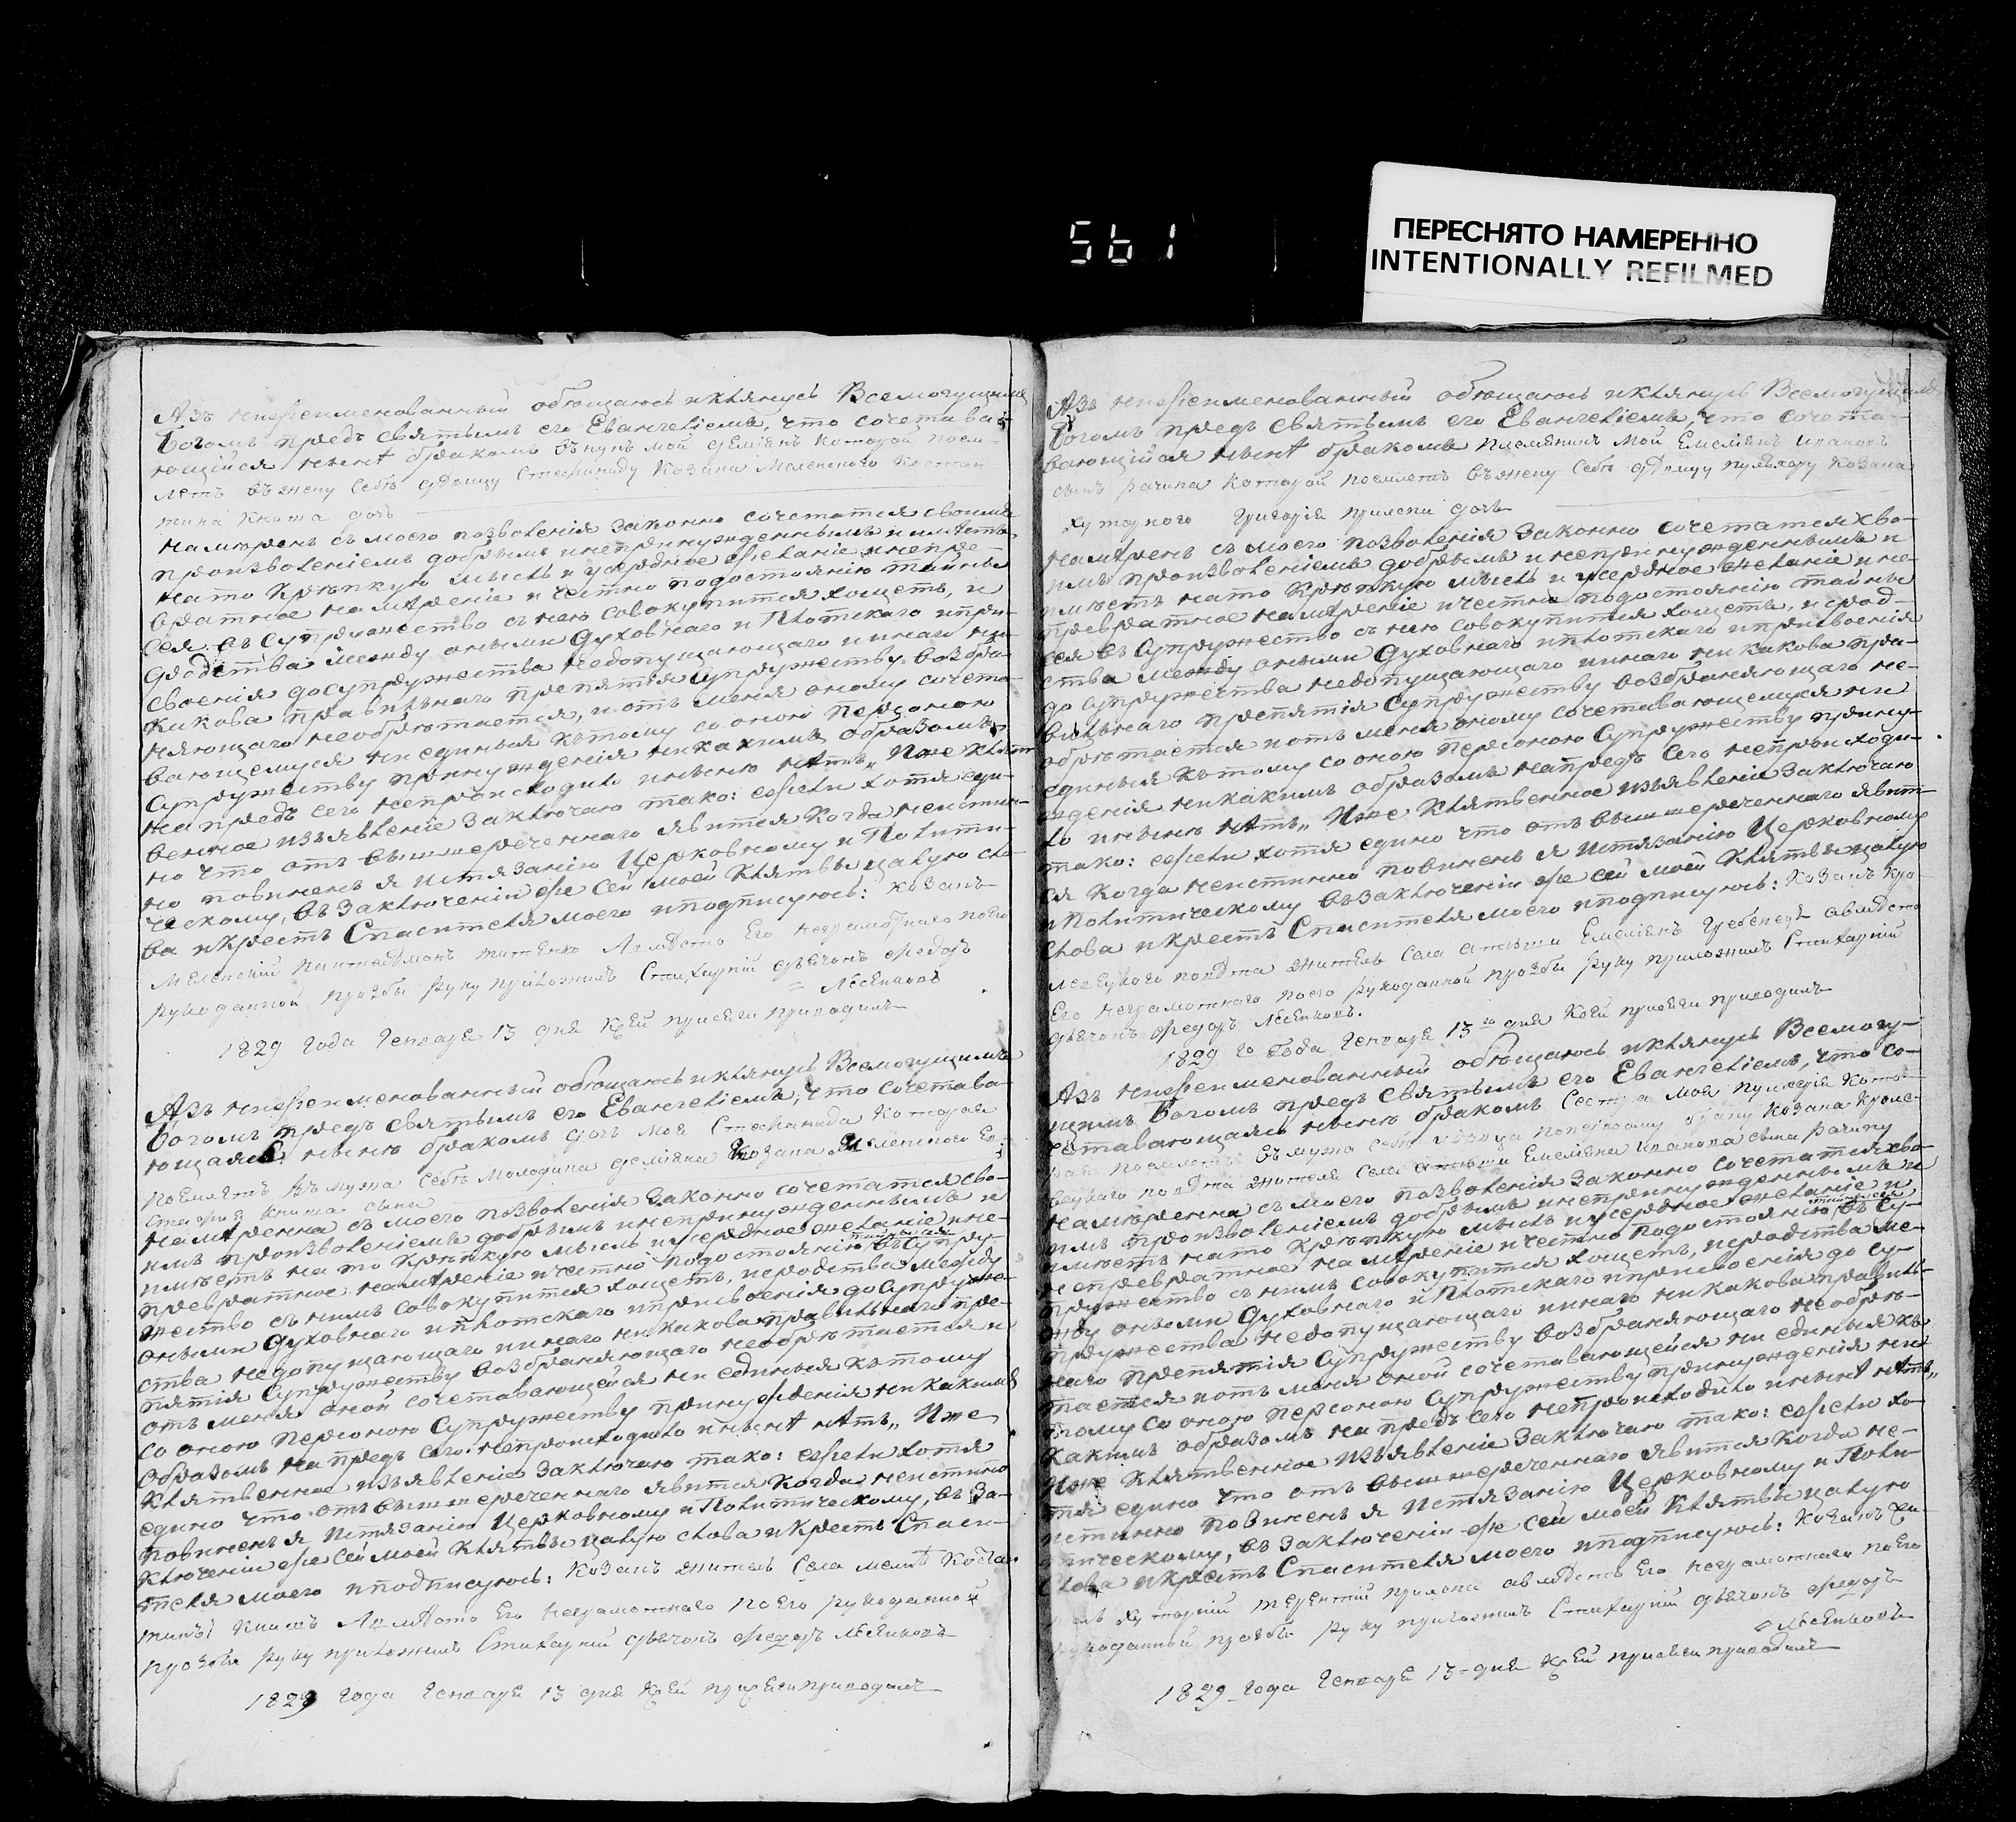 561
ПЕРЕСНЯТО НАМЕРЕННО
INTENTIONALLY REFILMED
Азъ нижеименованный обѣщаюсь и клянусь Всемогущимъ
Богомъ предъ святымъ его Евангелiемъ, что сочетава-
ющiйся нынѣ бракомъ внукъ мой демiянъ которой поем-
летъ въ жену себѣ дѣвицу Стефаниду Козана Меленского Костан
тина Книша дочь
намѣренъ съ моего позволенiя законно сочетатся своимъ
произволенiемъ добрымъ и непринужденнымъ и имѣетъ
на то крѣпкую мысль и усердное желанiе и непре-
вратное намѣренiе и честно по достоянiю тайны
сея въ супружество с нею совокупится хощетъ, и
сродства между оными духовнаго и плотскаго и при-
своенiя до супружества недопущающаго и инаго ни-
какова правильнаго препятiя супружеству возбра-
няющаго необрѣтается, и отъ меня оному сочета-
вающемуся ни единыя къ тому со оною персоною
супружеству принужденiя никакимъ образомъ
напредъ сего непроисходило и нынѣ нѣтъ, Иже клят-
венное изъявленiе заключаю тако: ежели хотя еди-
но что отъ вышереченнаго явится когда неистин-
но повиненъ я истязанiю Церковному и Полити-
ческому, въ заключенiи же сей моей клятвы цалую сло-
ва и крестъ Спасителя моего и подписуюсь: козакъ
Меленскiй Пантелѣмонъ титенко А вмѣсто Его неграмотнаго по его
рукоданной прозбы руку приложилъ Стихарный дьячокъ федоръ
= Лесенковъ
1829 года Генваря 13 дня К сей присяги приводилъ
Азъ нижеименованный обѣщаюсь и клянусь Всемогущимъ
Богомъ предъ святымъ его Евангелiемъ, что сочетава-
ющаяся нынѣ бракомъ дочь моя Стефанида которая
поемлетъ въ мужа себѣ молодика демiяна Козана Меленского Ев-
стафия книша сына
намѣренна съ моего позволенiя законно сочетатся сво-
имъ произволенiемъ добрымъ и непринужденнымъ и
имѣетъ на то крѣпкую мысль и усердное желанiе и не-
превратное намѣренiе и честно по достоянiю тайны сея въ супру-
жество съ нимъ совокупится хощетъ, и сродства между
оными духовнаго и плотскаго и присвоенiя до супруже-
ства недопущающаго и инаго никакова правильнаго пре-
пятiя супружеству возбраняющаго необрѣтается и
отъ меня оной сочетавающейся ни единыя къ тому
со оною персоною супружеству принужденiя никакимъ
образомъ напредъ сего непроисходило и нынѣ нѣтъ, Иже
клятвенное изъявленiе заключаю тако: ежели хотя
едино что отъ вышереченнаго явится когда неистинно
повиненъ я истязанiю Церковному и Политическому, въ за-
ключенiи же сей моей клятвы цалую слова и крестъ Спаси-
теля моего и подписуюсь: Козакъ житель Села мелнѣ Костан
тинъ Книшъ А вмѣсто Его неграмотнаго по его рукоданной
прозбы руку приложилъ Стихарный дьячокъ федоръ Лесенковъ
1829 года Генваря 13 дня К сей присяги приводилъ
Азъ нижеименованный обѣщаюсь и клянусь Всемогущимъ
Богомъ предъ святымъ его Евангелiемъ, что сочета-
вающiйся нынѣ бракомъ племянникъ мой Емелiянъ Ивановъ
сынъ которой поемлетъ въ жену себѣ дѣвицу козана
хуторного Григорiя дочь
намѣренъ съ моего позволенiя законно сочетатся сво-
имъ произволенiемъ добрымъ и непринужденнымъ и
имѣетъ на то крѣпкую мысль и усердное желанiе и не-
превратное намѣренiе и честно по достоянiю тайны
сея въ супружество съ нею совокупится хощетъ, и срод-
ства между оными духовнаго и плотскаго и присвоенiя
до супружества недопущающаго и инаго никакова пра-
вильнаго препятiя супружеству возбраняющаго не-
обрѣтается и отъ меня оному сочетавающемуся ни
единыя къ тому со оною персоною супружеству прину-
жденiя никакимъ образомъ напредъ сего непроисходи-
ло и нынѣ нѣтъ, Иже клятвенное изъявленiе заключаю
тако: ежели хотя едино что отъ вышереченнаго явит-
ся когда неистинно повиненъ я истязанiю Церковному
и Политическому въ заключенiи же сей моей клятвы цалую
слова и крестъ Спасителя моего и подписуюсь: козакъ
повѣта житель Села Емелiянъ а вмѣсто
Его неграмотнаго по его рукоданной прозбы руку приложилъ Стихарный
дьячокъ федоръ Лесенковъ.
1829 го Года Генваря 13 го дня К сей присяги приводилъ
Азъ нижеименованный обѣщаюсь и клянусь Всемогу-
щимъ Богомъ предъ святымъ его Евангелiемъ, что со-
четавающаясь нынѣ бракомъ Сестра моя кото-
рая поемлетъ въ мужа себѣ по первому браку Козана
повѣта жителя Села Емелiяна Иванова сына
намѣренна съ моего позволенiя законно сочетатся сво-
имъ произволенiемъ добрымъ и непринужденнымъ и
имѣетъ на то крѣпкую мысль и усердное желанiе и
непревратное намѣренiе и честно по достоянiю тайны сея въ су-
пружество съ нимъ совокупится хощетъ, и сродства ме-
жду оными духовнаго и плотскаго и присвоенiя до су-
пружества недопущающаго и инаго никакова правиль-
наго препятiя супружеству возбраняющаго необрѣ-
тается и отъ меня оной сочетавающейся ни единыя къ
тому со оною персоною супружеству принужденiя ни-
какимъ образомъ напредъ сего непроисходило и нынѣ нѣтъ,
Иже клятвенное изъявленiе заключаю тако: ежели хо-
тя едино что отъ вышереченнаго явится когда не-
истинно повиненъ я истязанiю Церковному и Поли-
тическому, въ заключенiи же сей моей клятвы цалую
слова и крестъ Спасителя моего и подписуюсь: Козакъ
хуторный терентiй а вмѣсто Его неграмотнаго по Его
рукоданной прозбы руку приложилъ Стихарный дьячокъ федоръ
= Лесенковъ
1829 года Генваря 13 дня К сей присяги приводилъ